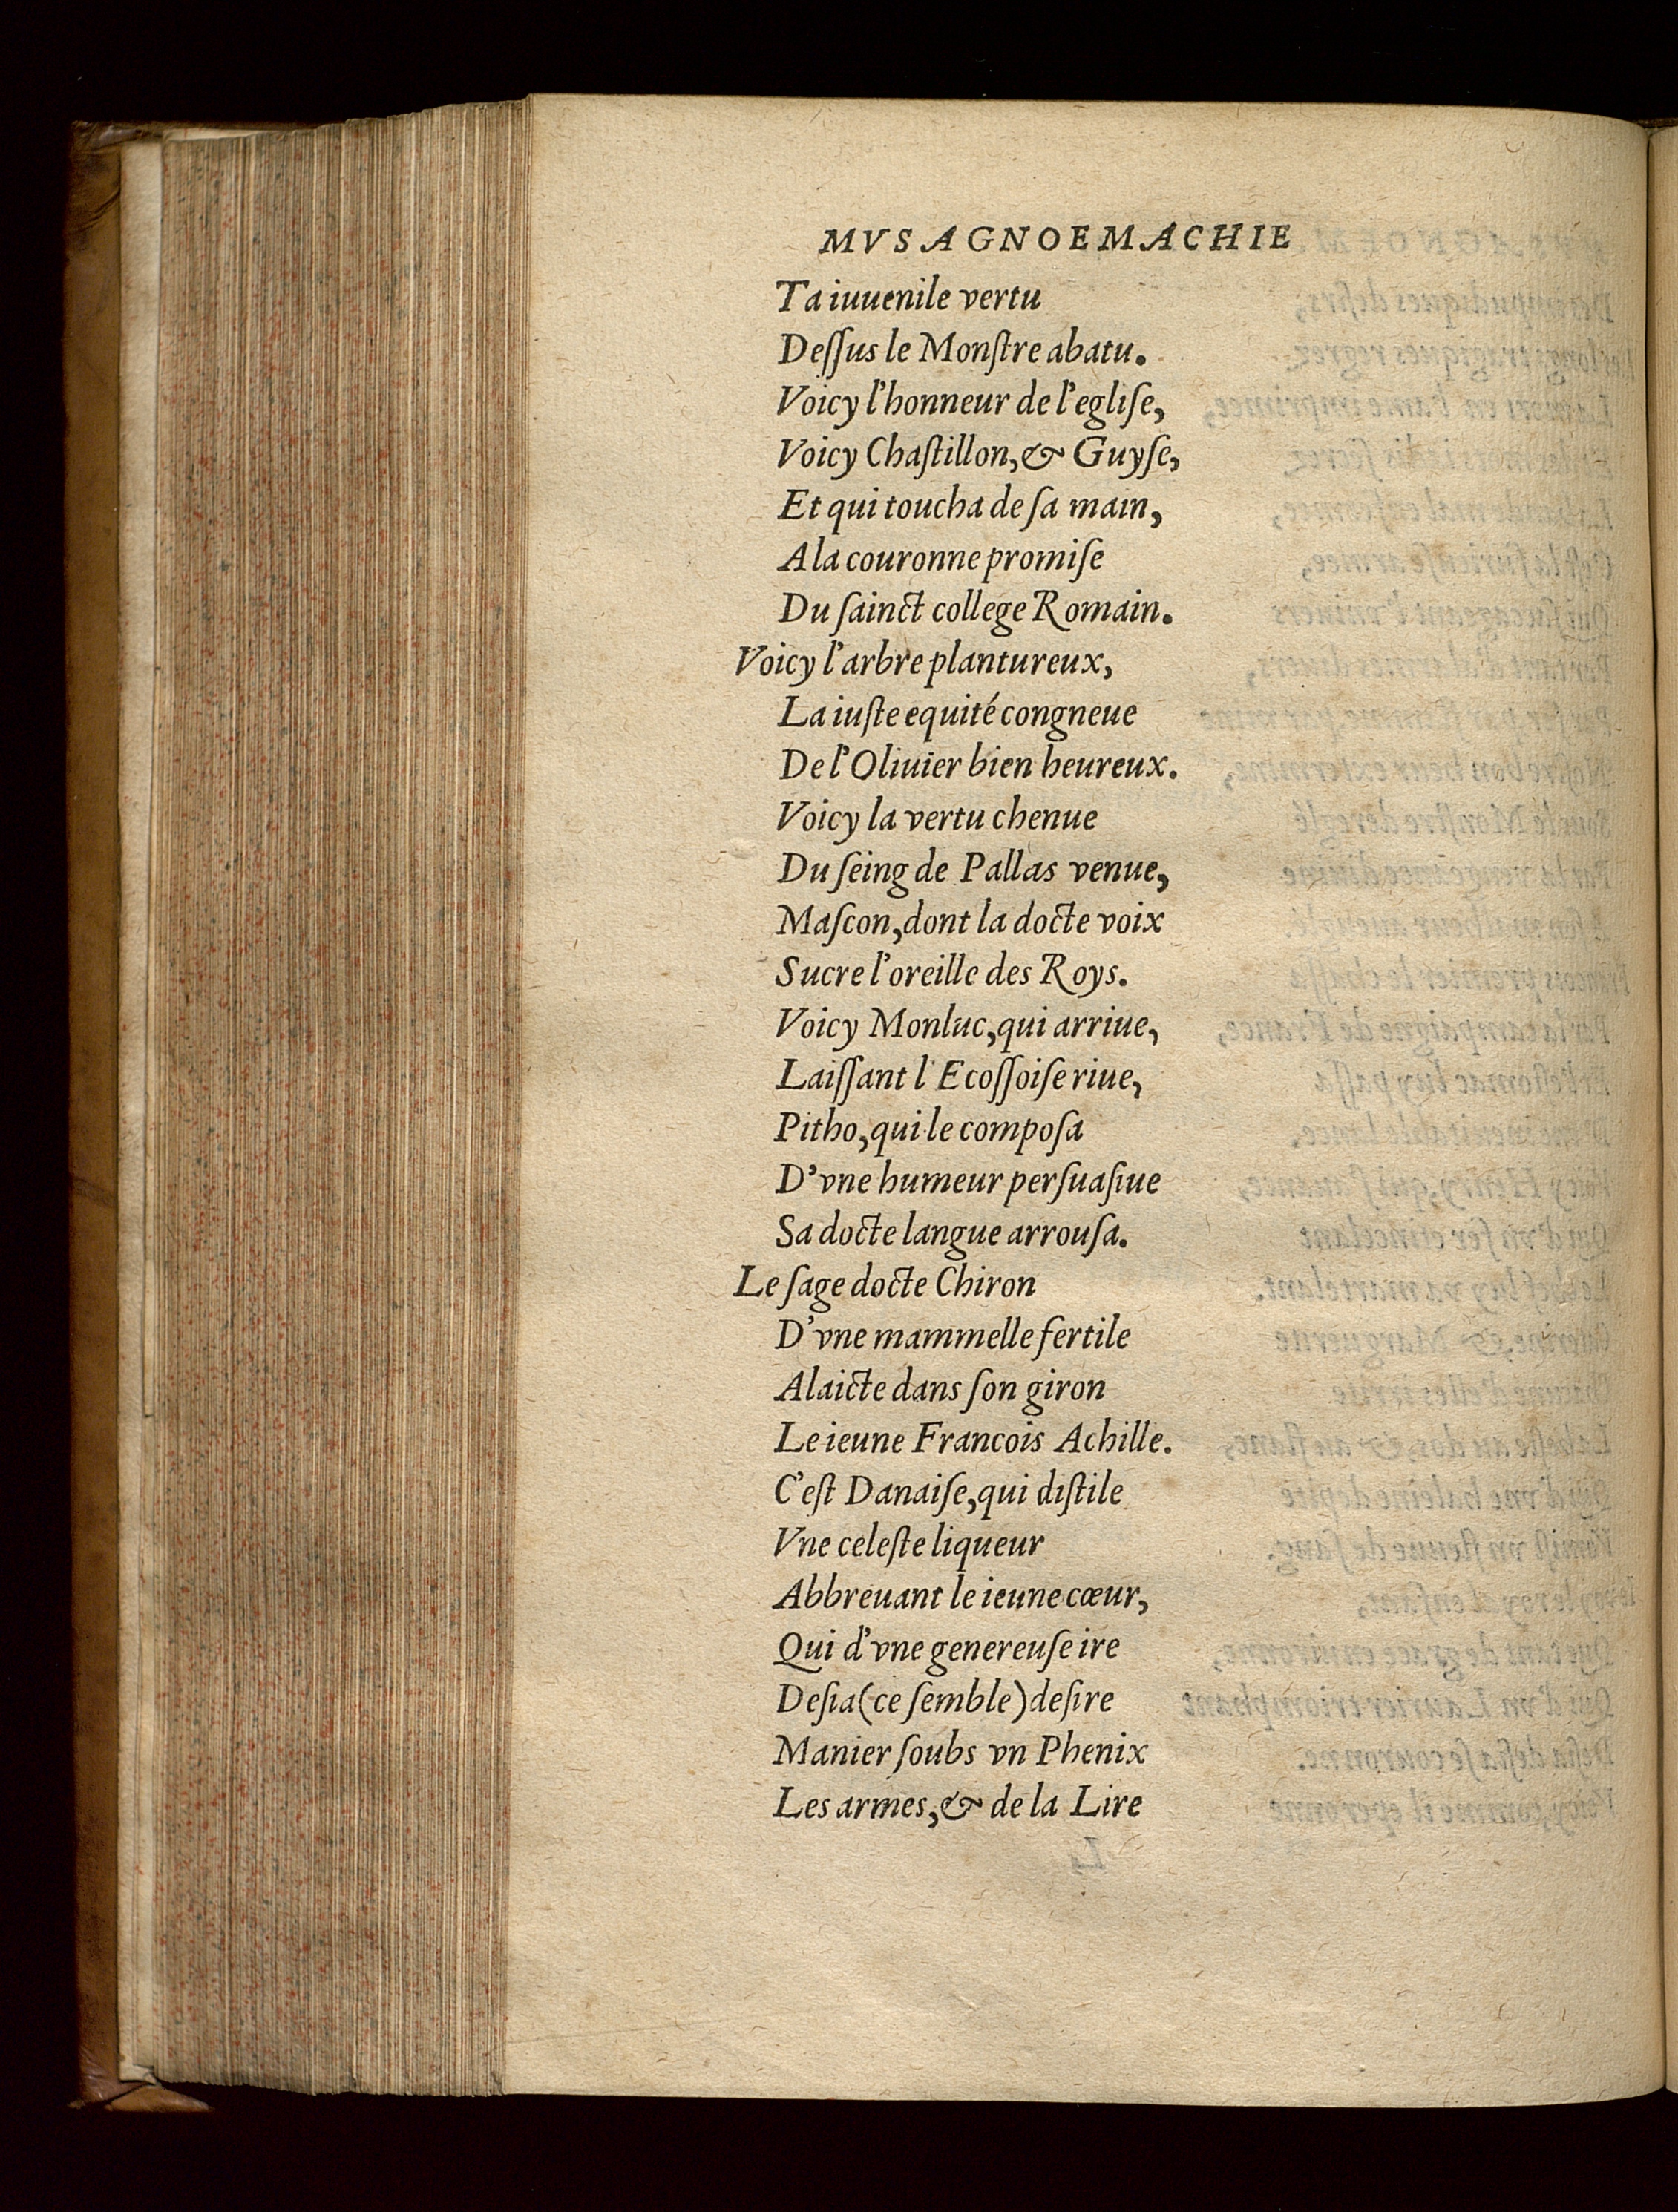 MVSAGNOEMACHIE
Ta iuuenile vertu
Deſſus le Monſtre abatu.
Voicy l'honneur de l'egliſe,
Voicy Chaſtillon, & Guyſe,
Et qui toucha de ſa main,
A la couronne promiſe
Du ſainct college Romain.
Voicy l'arbre plantureux,
La iuſte equité congneue
De l'Oliuier bien heureux.
Voicy la vertu chenue
Du ſeing de Pallas venue,
Maſcon, dont la docte voix
Sucre l'oreille des Roys.
Voicy Monluc, qui arriue,
Laiſſant l'Ecoſſoiſe riue,
Pitho, qui le compoſa
D'vne humeur perſuaſiue
Sa docte langue arrouſa.
Le ſage docte Chiron
D'vne mammelle fertile
Alaicte dans ſon giron
Le ieune Francois Achille.
C'eſt Danaiſe, qui diſtile
Vne celeſte liqueur
Abbreuant le ieune cœur,
Qui d'vne genereuſe ire
Deſia (ce ſemble) deſire
Manier ſoubs vn Phenix
Les armes, & de la Lire